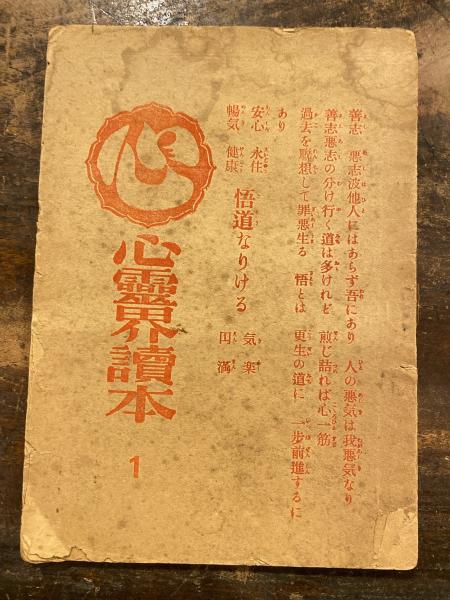 善志 悪志波他人にはあらず吾にあり 人の悪気は我悪気なり
善志悪志の分け行く道は多けれど 煎じ詰れば心一筋
過去を黙想して罪悪生る 悟とは 更生の道に 一歩前進するに
あり
安心 永住
暢気 健康
悟道なりける
気楽
円満
心
心靈界讀本
1